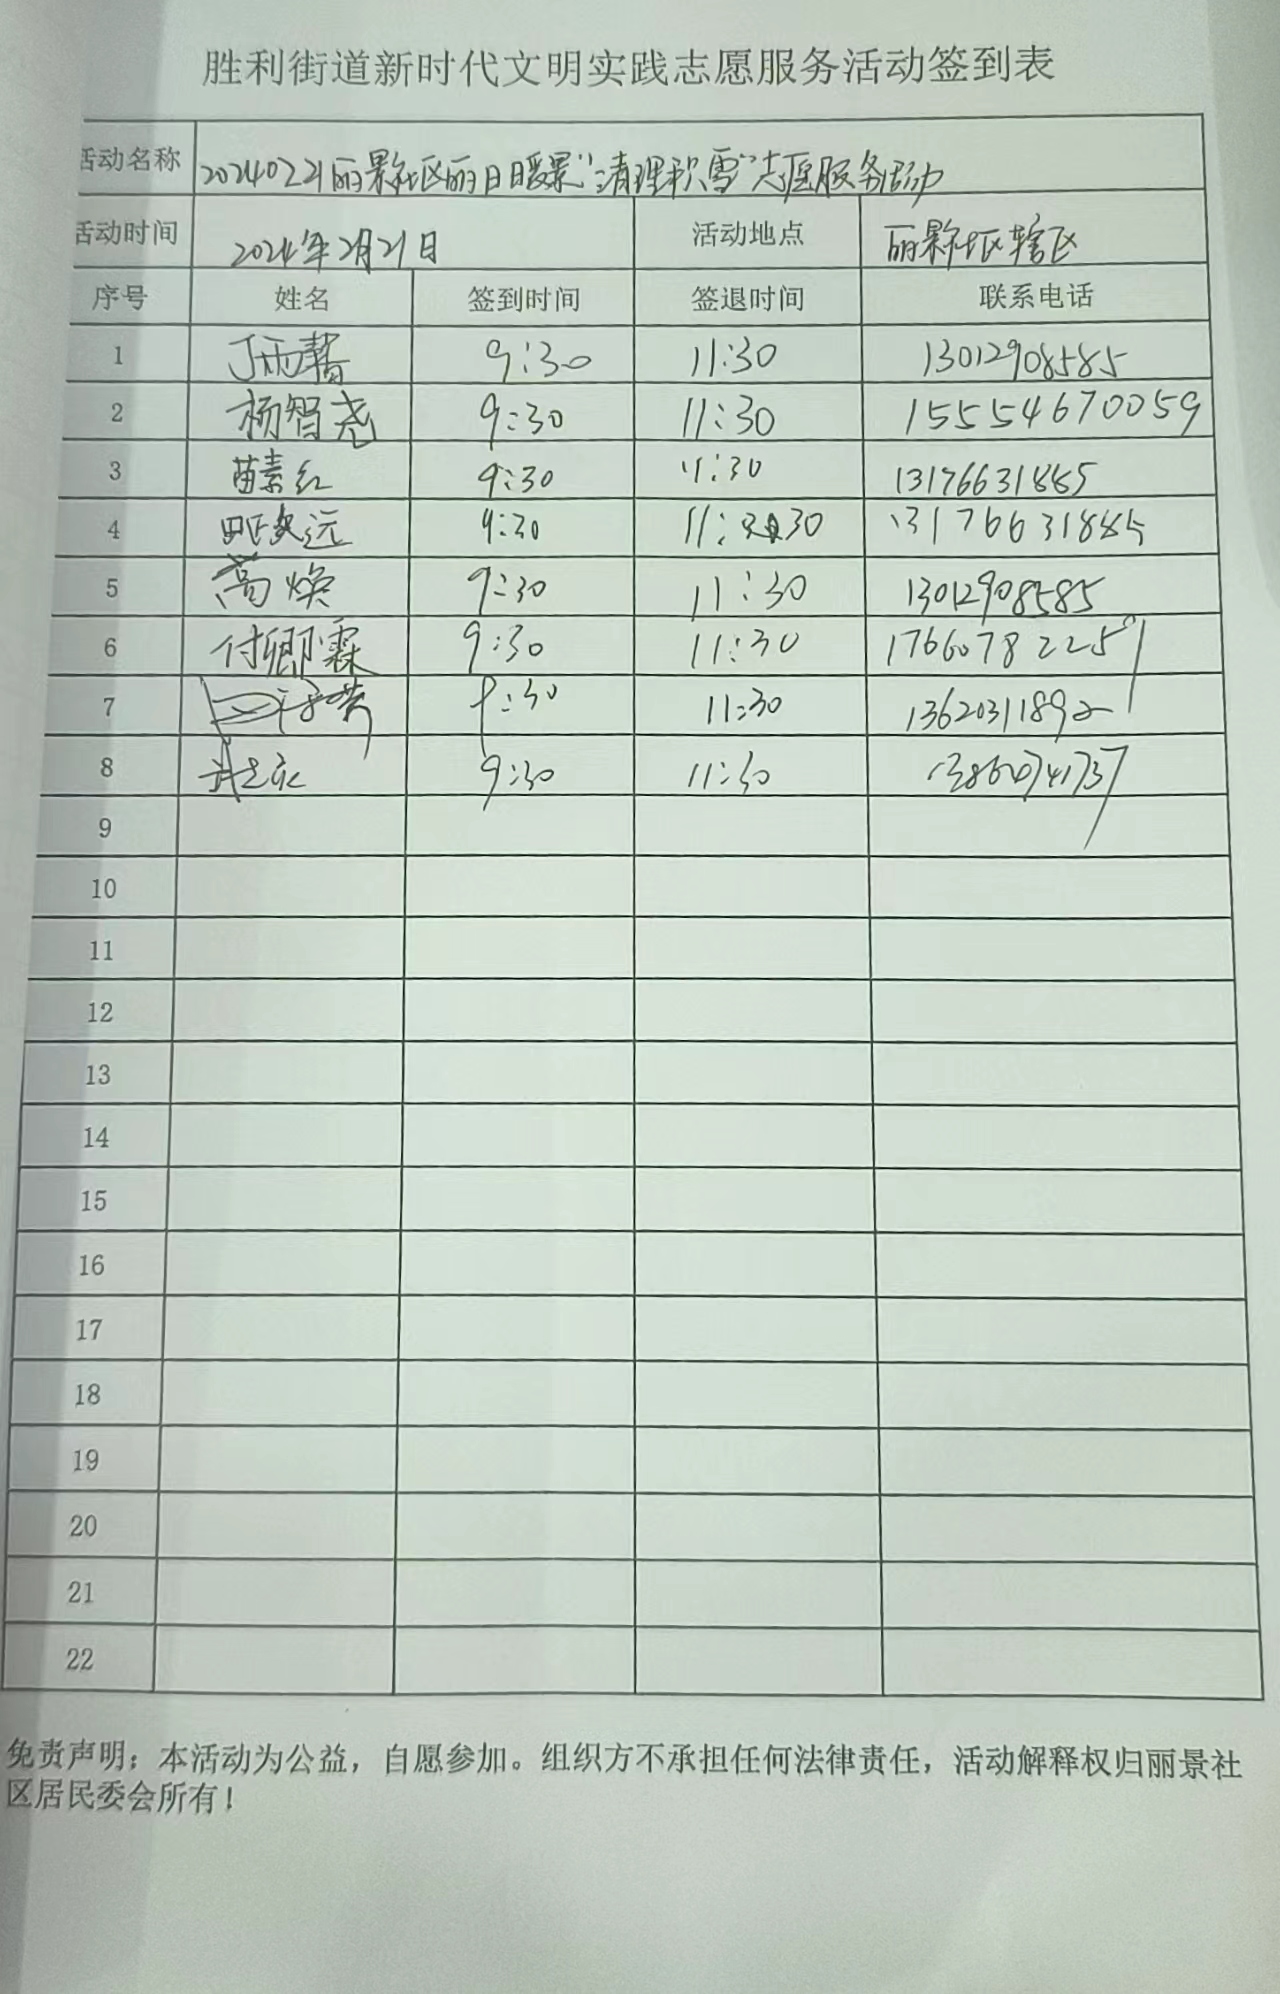 胜利街道新时代文明实践志愿服务活动签到表
活动名称 20240221丽景社区丽日暖景“清理积雪”志愿服务活动
活动时间 2024年2月21日 活动地点 丽景社区辖区
序号 姓名 签到时间 签退时间 联系电话
1 丁雨馨 9:30 11:30 13012908585
2 杨智尧 9:30 11:30 15554670059
3 苗素红 9:30 11:30 13176631885
4 远 9:30 11:30 13176631885
5 高焕 9:30 11:30 13012908585
6 付卿霖 9:30 11:30 17660782259
7 9:30 11:30 13620311892
8 9:30 11:30
9
10
11
12
13
14
15
16
17
18
19
20
21
22
免责声明：本活动为公益，自愿参加。组织方不承担任何法律责任，活动解释权归丽景社
区居民委会所有！